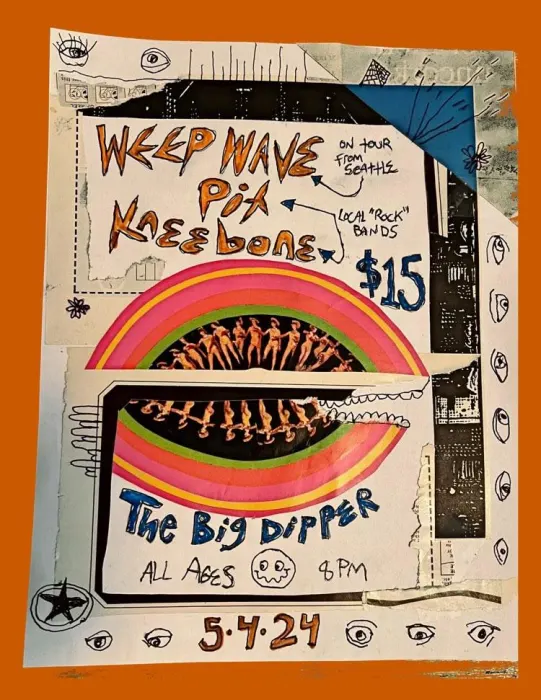 WEEP WAVE
ON TOUR
FROM
SEATTLE
Pit
LOCAL "ROCK"
BANDS
KNEEbONE
$15
The Big DIPPER
ALL AGES
8PM
5.4.24